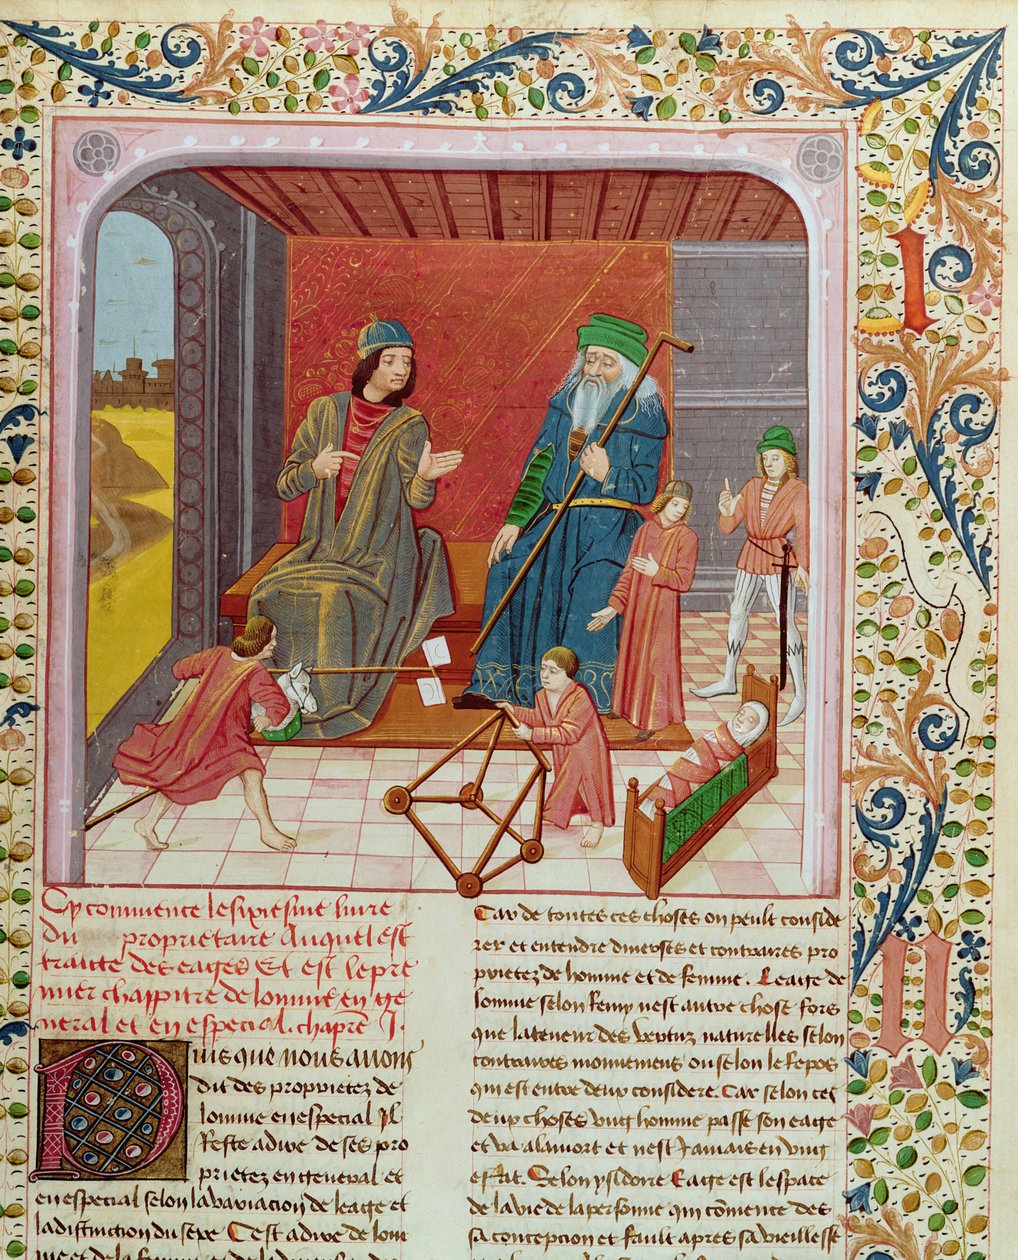 Cy commence le sixiesme livre
du propriétaire Auquel est
traitte des eages Et est le pre
mier chappitre de lomme en ge
neral et en especial. chapre I.
Puis que nous avons
dit des proprietez de
lomme en especial Il
Reste a dire de ses pro
prietez en general et
en especial selon la variacion de leage et
la distinction du sexe Cest a dire de lom
me et de la femme
Car de toutes ces choses on peult conside
rer et entendre diverses et contraires pro
prietez de homme et de femme. Leage de
lomme selon Remy nest autre chose fors
que la teneur des vertuz naturelles selon
contraires mouvemens ou selon le Repos
qui est entre deux considere. Car selon ces
deux choses ung homme passe son eage
et va a la mort et nest Jamais en ung
estat. Selon ysidore Eage est lespace
de la vie de la personne qui comence des
sa concepcion et fault apres sa vieillesse